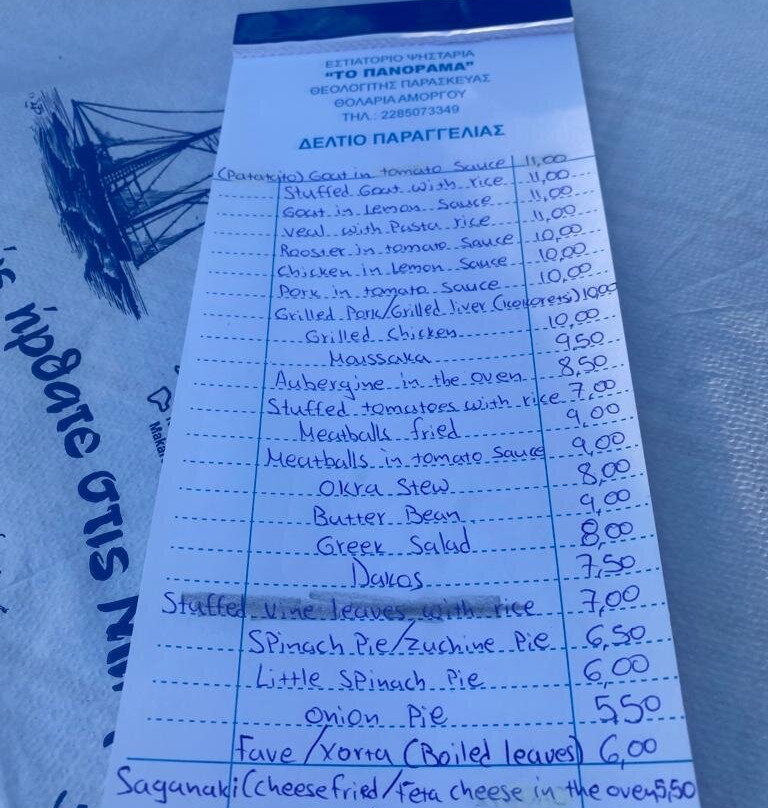 ΕΣΤΙΑΤΟΡΙΟ ΨΗΣΤΑΡΙΑ
"ΤΟ ΠΑΝΟΡΑΜΑ"
ΘΕΟΛΟΓΙΤΗΣ ΠΑΡΑΣΚΕΥΑΣ
ΘΟΛΑΡΙΑ ΑΜΟΡΓΟΥ
ΤΗΛ.: 2285073349
ΔΕΛΤΙΟ ΠΑΡΑΓΓΕΛΙΑΣ
(Patatato) Goat in tomato Sauce 11,00
Stuffed Goat with rice 11,00
Goat in Lemon Sauce 11,00
Veal with Pasta rice 11,00
Rooster in tomato Sauce 10,00
Chicken in Lemon Sauce 10,00
Pork in tomato Sauce 10,00
Grilled Pork/Grilled liver (kokorets) 10,00
Grilled Chicken 10,00
Moussaka 9,50
Aubergine in the oven 8,50
Stuffed tomatoes with rice 7,00
Meatballs fried 9,00
Meatballs in tomato Sauce 9,00
Okra Stew 8,00
Butter Bean 9,00
Greek Salad 8,00
Dakos 7,50
Stuffed vine leaves with rice 7,00
Spinach Pie/zuchine Pie 6,50
Little Spinach Pie 6,00
Onion Pie 5,50
Fave/χορτα (Boiled leaves) 6,00
Saganaki (cheese fried/Feta cheese in the oven 5,50
ήρθατε στις